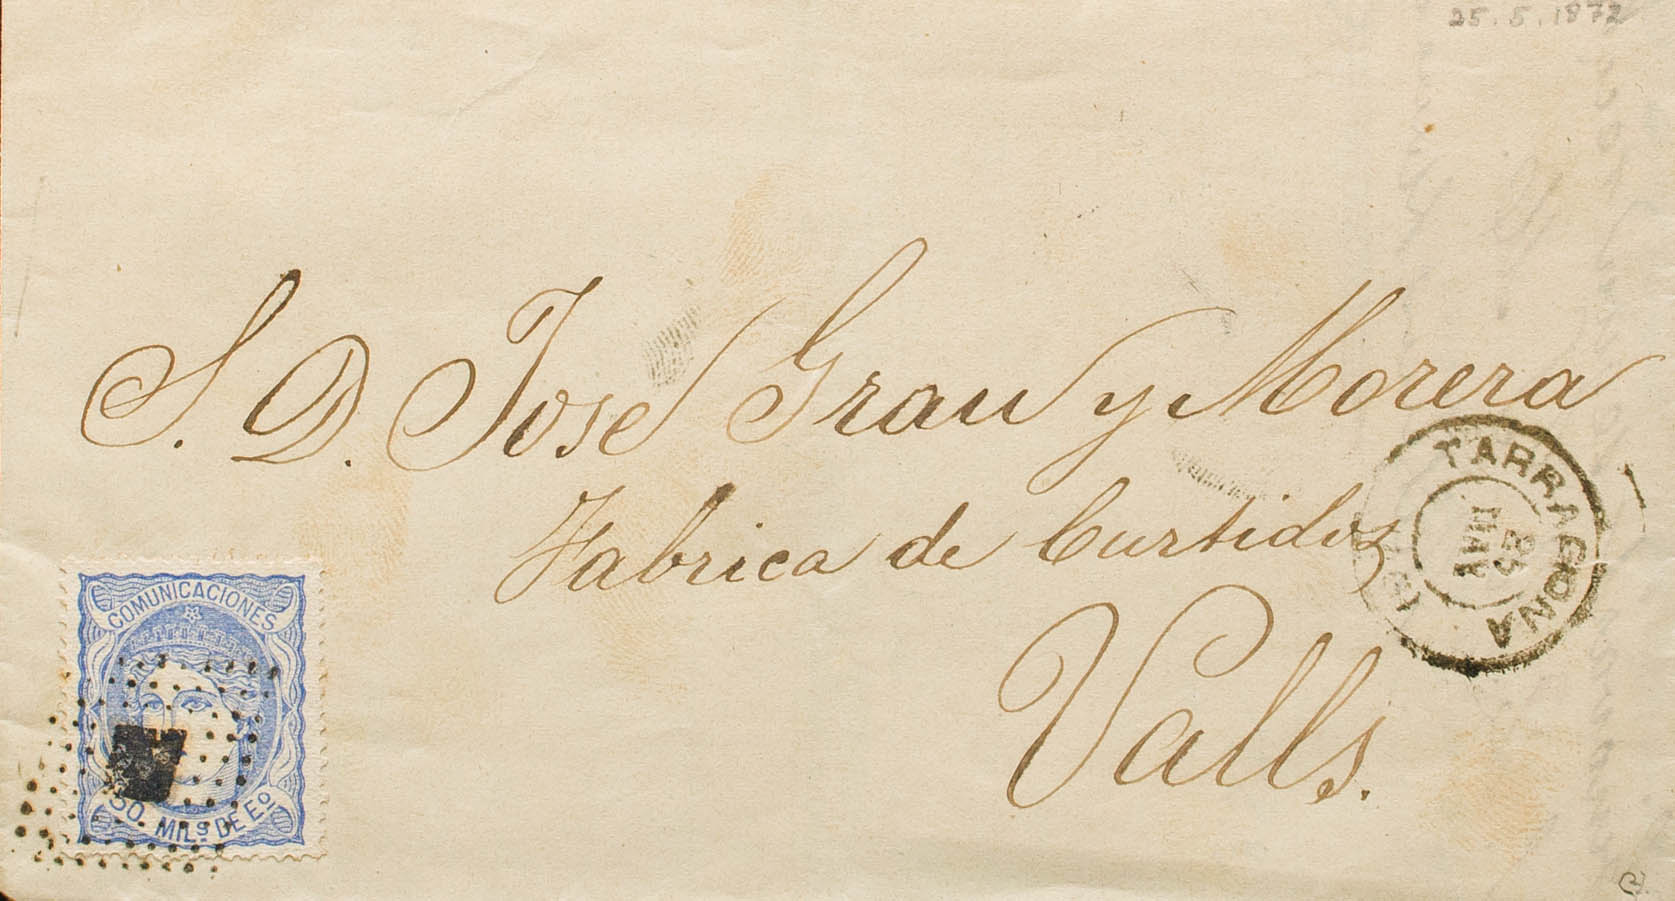 25.5.1872
S. D. José Grau y Morera
Fabrica de Curtidos
Valls.
TARRAGONA
25
MAY
COMUNICACIONES
50. MILS. DE EO.